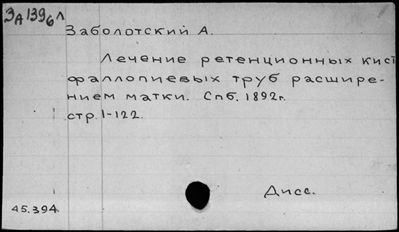 ЗА1396л
Заболотский А.
Лечение ретенционных кист
фаллопиевых труб расшире-
нием матки. Спб. 1892г.
стр. 1-122.
Дисс.
45.394.